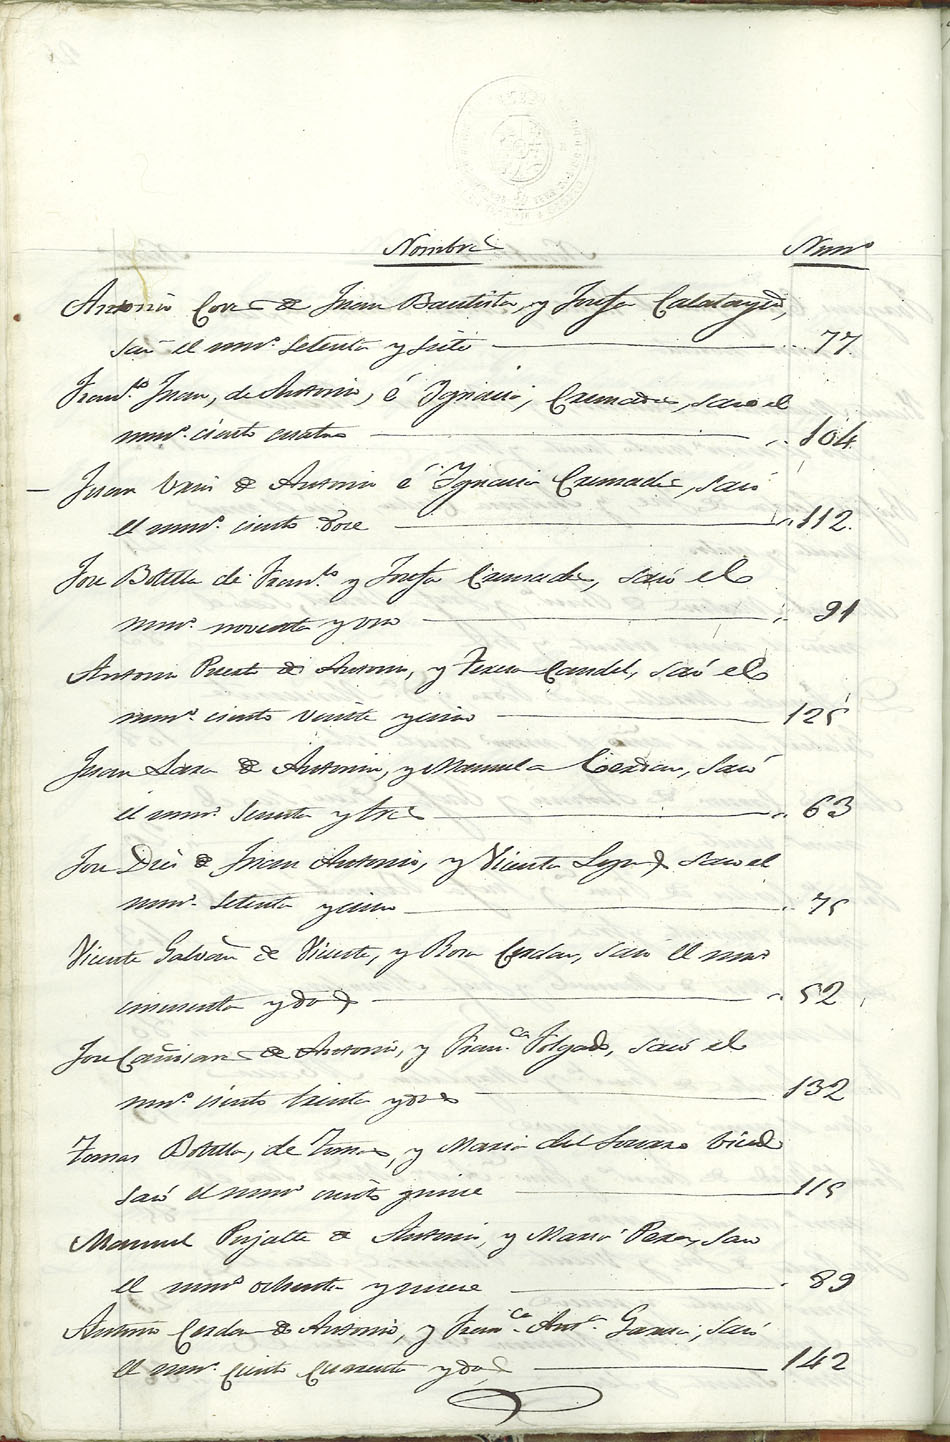 Nombres Numº
Antonio de Juan Bautista, y Josefa Calatayud,
sacó el numº setenta y siete 77
Franco Juan, de Antonio, é Ignacia, Cremades, saco el
numº ciento cuatro 104
Juan de Antonio é Ignacia Cremades, sacó
el numº ciento doce 112
Jose Botella de Franco y Josefa Cremades, sacó el
numº noventa y uno 91
Antonio de Antonio, y Teresa Candel, sacó el
numº ciento veinte y cinco 125
Juan de Antonio, y Manuela Cerdan, sacó
el numº sesenta y tres 63
Jose Dies de Juan Antonio, y Vicenta saco el
numº setenta y cinco 75
Vicente Galvañ de Vicente, y Rosa Cerdan, sacó el numº
cincuenta y dos 52
Jose Cañizares de Antonio, y Franca Folgado, sacó el
numº ciento treinta y dos 132
Tomas Botella, de Tomas, y Maria del
sacó el numº ciento quince 115
Manuel Pujalte de Antonio, y Maria Perez, saco
el numº ochenta y nueve 89
Antonio Cerdan de Antonio, y Franca Anta Garcia, sacó
el numº ciento cuarenta y dos 142